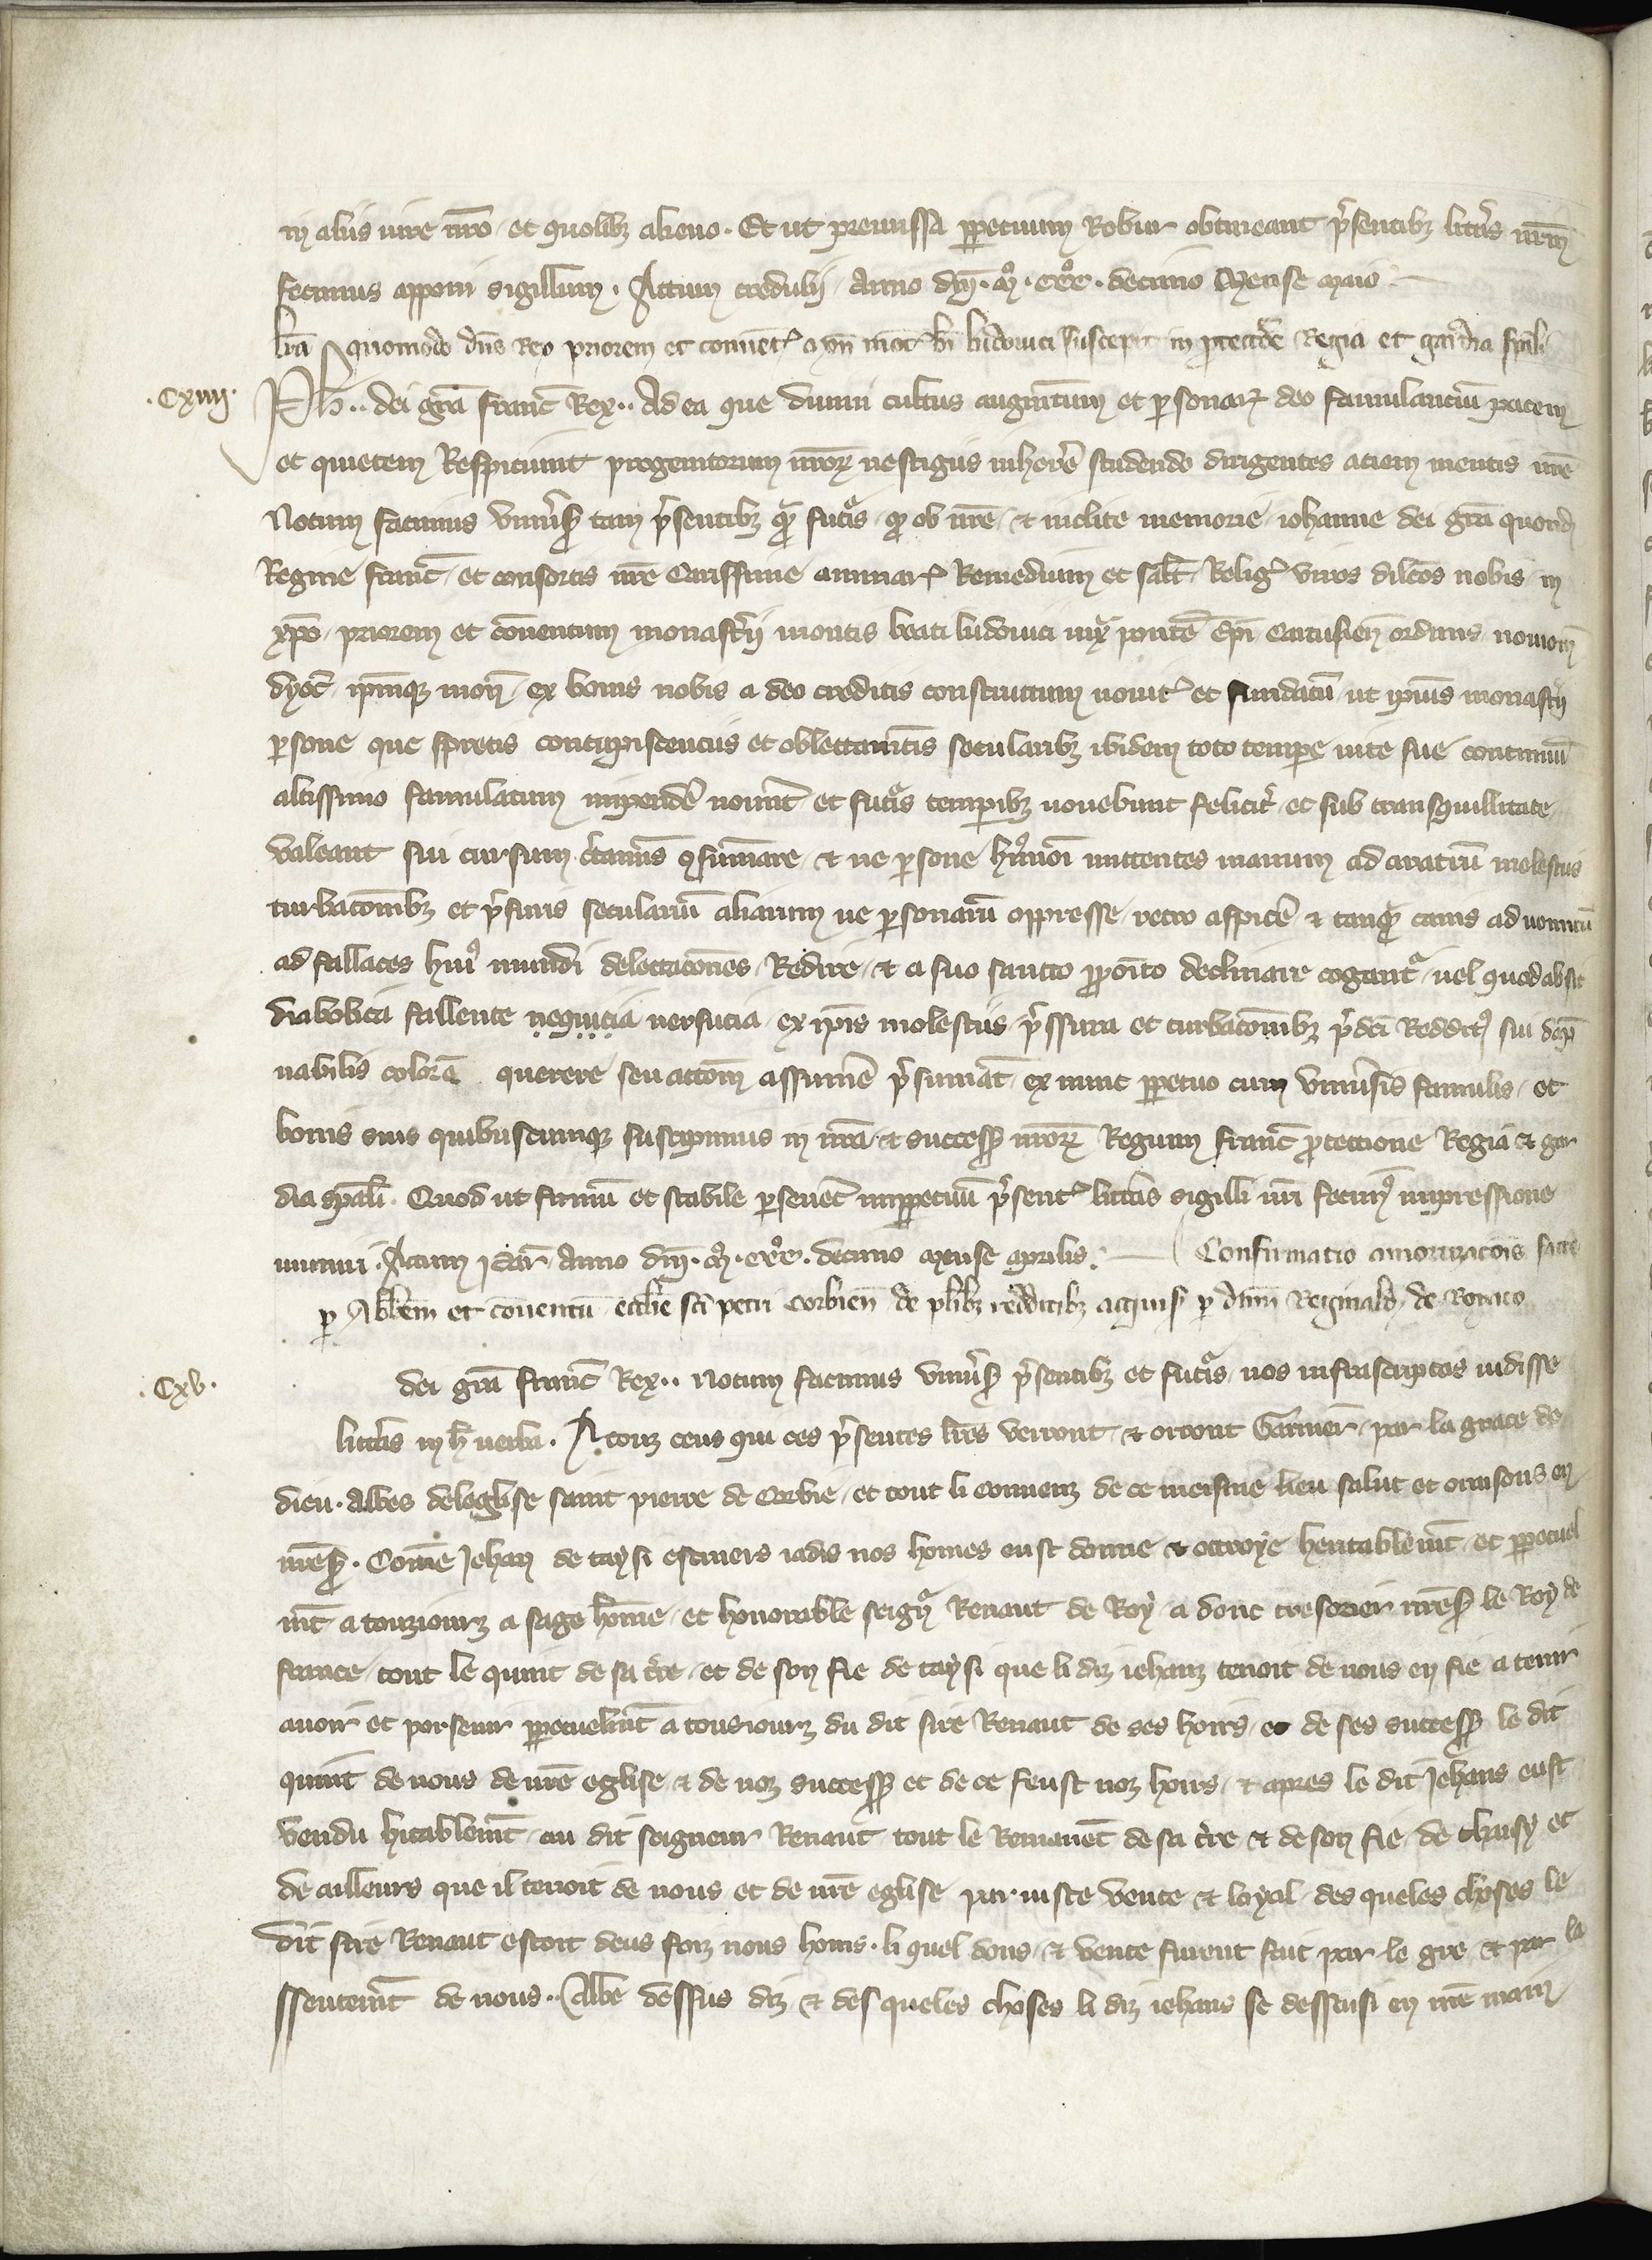 in aliis iure nr̄o et quolibꝫ alieno. Et ut premissa ꝑpetuum Robur obtineant p̄sentibꝫ litt̄is nr̄m
fecimus apponi sigillum. Actum credulij Anno dn̄i. mº. cccº. decimo Mense maio
lr̄a quomodo dn̄s Rex priorem et conuent̄ mont̄ bi ludouici suscepit in protectōe Regia et gardia sp̄ali
.Cxiiij. Ph.. dei gr̄a franc̄ Rex.. Ad ea que diuini cultus augm̄tum et personaꝝ deo famulanciū pacem
et quietem Respiciunt progenitorum nr̄oꝝ uestigiis inherē studendo dirigentes aciem mentis nr̄e
Notum facimus vniūsis tam p̄sentibꝫ qᵃm fut̄is qᵈ ob nr̄e et inclite memorie iohanne dei gr̄a quond̄
Regine franc̄ et consortis nr̄e carissime animaꝝ Remedium et salt̄ Reliḡ viros dilc̄os nobis in
xp̄o priorem et cōuentum monast̄ij montis beati ludouici iux̄ pontē Ep̄i cartusien̄ ordinis nouiom̄
dyoc̄ ip̄mqꝫ mon̄ ex bonis nobis a deo creditis constructum nouit̄ et fundatū ut ip̄ius monast̄ij
persone que spretis concupiscenciis et oblectam̄tis secularibꝫ ibidem toto tempore uite sue continuū
altissimo famulatum impendē nou̅nt et fut̄is temporibꝫ uouebunt felicit̄ et sub tranquillitate
valeant sui cursum c̄taminis ꝯsummare et ne persone hmōi mittentes manum ad aratrū molestiis
turbacōnibꝫ et p̄ssuris seculariū aliarum ue personarū oppresse retro aspicē et tanqᵃm canis ad uomitū
ad fallaces huiꝰ mundi delectacōnes Redire et a suo sancto ꝓposito declinare cogant̄ uel quod absit
diabolica fallente nequicia uersucia ex ip̄is molestiis p̄ssura et turbacōnibꝫ p̄dc̄i Redditꝰ sui dāp
nabilis colorē querere seu acc̄onem assumē p̄sumāt ex nunc ꝑpetuo cum vniūsis famulis et
bonis suis quibuscumqꝫ suscipimus in nr̄a et success̄ nr̄oꝝ Regum franc̄ protectione Regia et gar
dia sp̄ali. Quod ut firmū et stabile perseuēt inꝑpetuū p̄sent̄ litt̄is sigilli nr̄i fecimꝰ impressione
muniri. Actum Anno dn̄i. mº. cccº. decimo mense aprilis. Confirmatio amortizacōis facte
p Abb̄em et conuentū eccl̄ie sc̄i petri corbien̄ de pl̄ibꝫ redditibꝫ acquis̄ p dn̄m Reginald̄ de Royaco
.Cxv. dei gr̄a franc̄ Rex.. Notum facimus vniūsis p̄sentibꝫ et fut̄is nos infrascriptas uidisse
litt̄as in h̄ uerba. A touz ceus qui ces p̄sentes lr̄es verront et orront Garnier par la grace de
dieu. abbes deleglise saint pierre de Corbie et tout li couuenz de ce meisme lieu salut et oroisons en
nr̄e sr̄. Cōme Jehan de taysi escuiers iadis nos homes eust donne et ottroye heritablem̄t et ꝑpetuel
m̄t a touziourz a sage hōme et honorable seign̄ Renaut de Roy a donc tresorier nr̄e sr̄ le Roy de
france tout le quint de sa t̄re et de son fie de taysi que li diz iehanz tenoit de nous en fie a tenir
auoir et porseuir ꝑpetuelm̄t a tousiourz du dit sire Renaut de ses hoirs et de ses success̄ le dit
quint de nous de nr̄e eglise et de noz success̄ et de ce feust noz homs et apres le dit Jehans eust
vendu h̄itablem̄t au dit seigneur Renaut tout le Remanēt de sa t̄re et de son fie de thaisy et
de ailleurs que il tenoit de nous et de nr̄e eglise par iuste vente et loyal des queles choses le
dit sire Renaut estoit deus foiz nous homs. li quel dons et vente furent fait par le gre et par la
ssentem̄t de nous.. Abbe dessus diz et des queles choses li diz iehans se dessaisi en nr̄e main